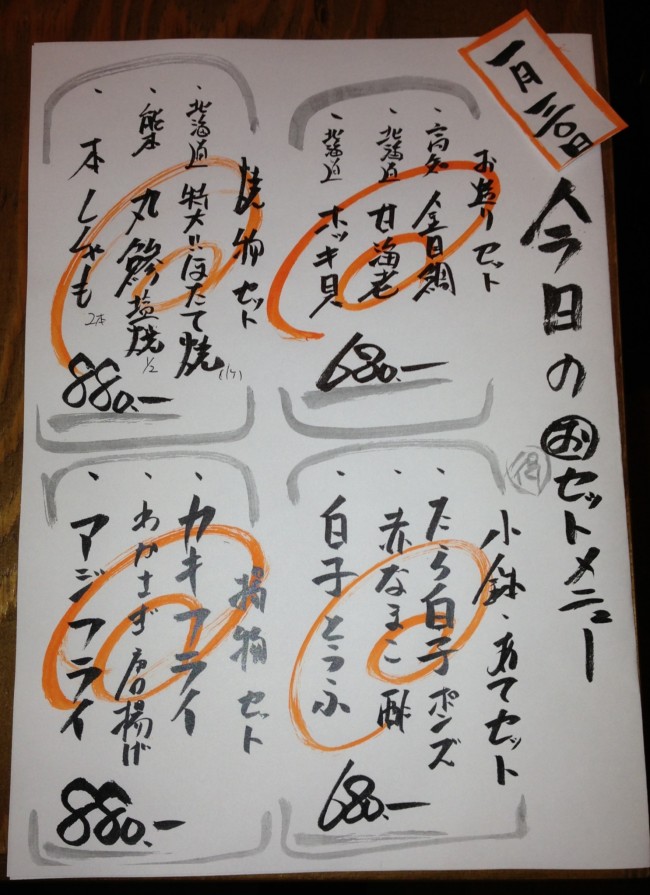 一月三〇日
今日の(お)(得)セットメニュー
お造りセット
、高知 金目鯛
、北海道 甘海老
、北海道 ホッキ貝
680.-
焼物セット
、北海道 特大!!ほたて焼(1ケ)
、熊本 丸鯵塩焼 1/2
、本ししゃも 2本
880.-
小鉢・あてセット
、たら白子ポンズ
、赤なまこ酢
、白子とうふ
680.-
揚物セット
、カキフライ
、わかさぎ唐揚げ
、アジフライ
880.-